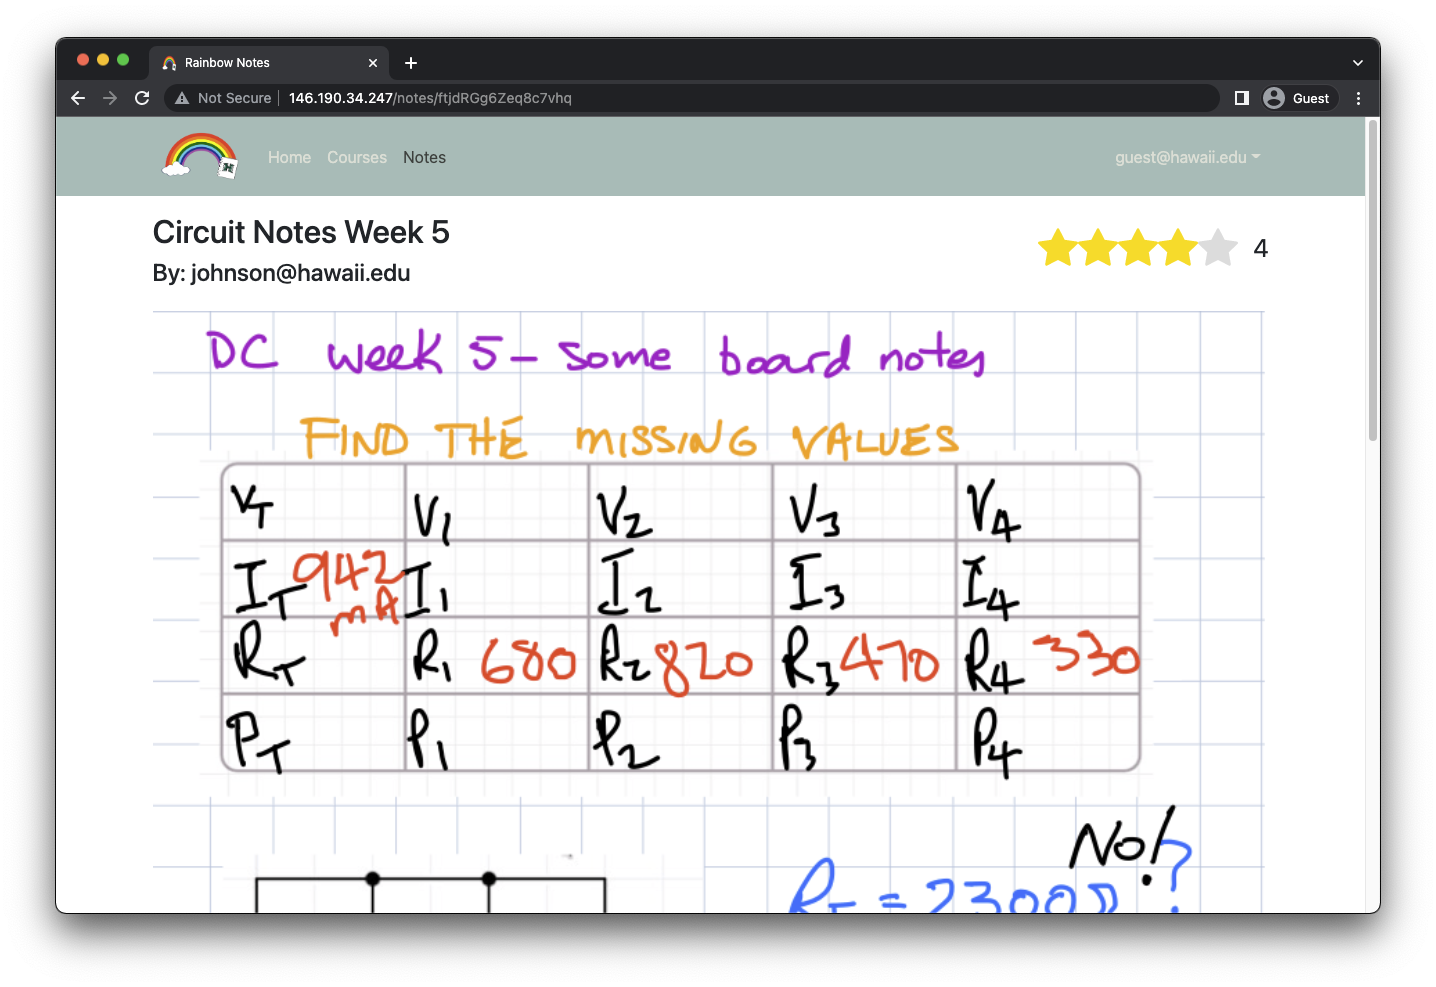 Rainbow Notes
Not Secure 146.190.34.247/notes/ftjdRGg6Zeq8c7vhq Guest
Home Courses Notes guest@hawaii.edu
Circuit Notes Week 5
By: johnson@hawaii.edu
4
DC week 5 - some board notes
FIND THE MISSING VALUES
VT V1 V2 V3 V4
IT 942 mA I1 I2 I3 I4
RT R1 680 R2 820 R3 470 R4 330
PT P1 P2 P3 P4
No!
RT = 2300Ω ?